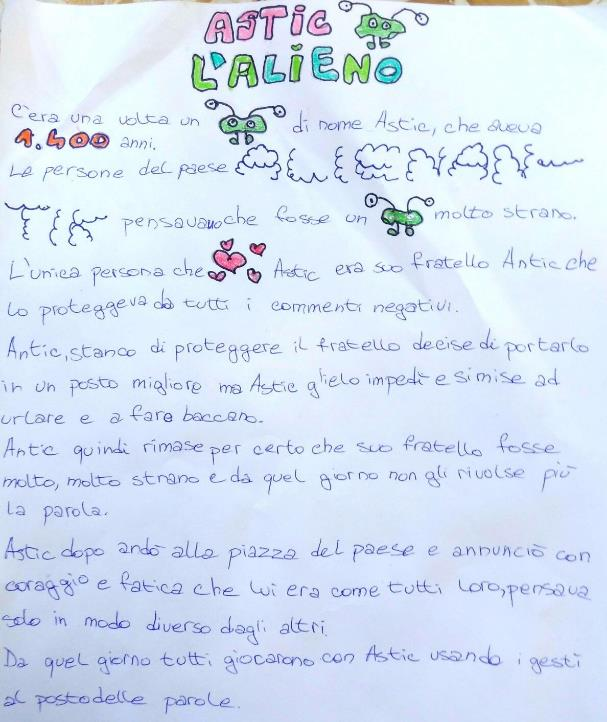 ASTIC
L'ALIENO
C'era una volta un di nome Astic, che aveva
1.400 anni.
Le persone del paese
pensavano che fosse un molto strano.
L'unica persona che Astic era suo fratello Antic che
lo proteggeva da tutti i commenti negativi.
Antic, stanco di proteggere il fratello decise di portarlo
in un posto migliore ma Astic glielo impedì e si mise ad
urlare e a fare baccano.
Antic quindi rimase per certo che suo fratello fosse
molto, molto strano e da quel giorno non gli rivolse più
la parola.
Astic dopo andò alla piazza del paese e annunciò con
coraggio e fatica che lui era come tutti loro, pensava
solo in modo diverso dagli altri.
Da quel giorno tutti giocarono con Astic usando i gesti
al posto delle parole.